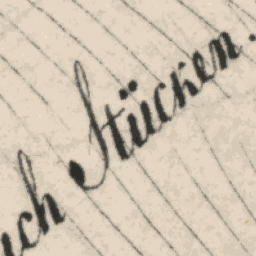 uch Stücken.